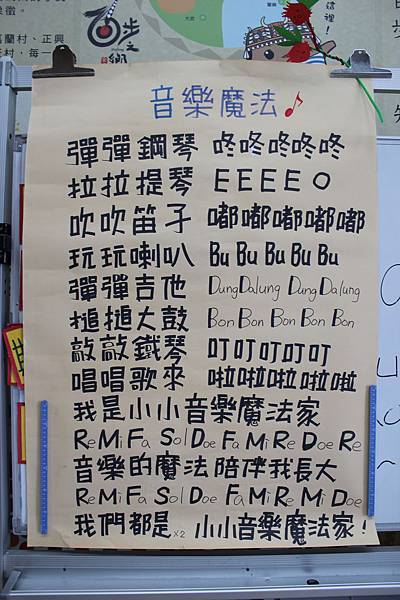 音樂魔法♪
彈彈鋼琴 咚咚咚咚咚
拉拉提琴 EEEEO
吹吹笛子 嘟嘟嘟嘟嘟
玩玩喇叭 Bu Bu Bu Bu Bu
彈彈吉他 DungDalung DungDalung
搥搥大鼓 Bon Bon Bon Bon Bon
敲敲鐵琴 叮叮叮叮叮
唱唱歌來 啦啦啦啦啦
我是小小音樂魔法家
Re Mi Fa Sol Doe Fa Mi Re Doe Re
音樂的魔法陪伴我長大
Re Mi Fa Sol Doe Fa Mi Re Mi Doe
我們都是x2 小小音樂魔法家!
百步之鄉
這裡!
蘭村、正興
村，每一